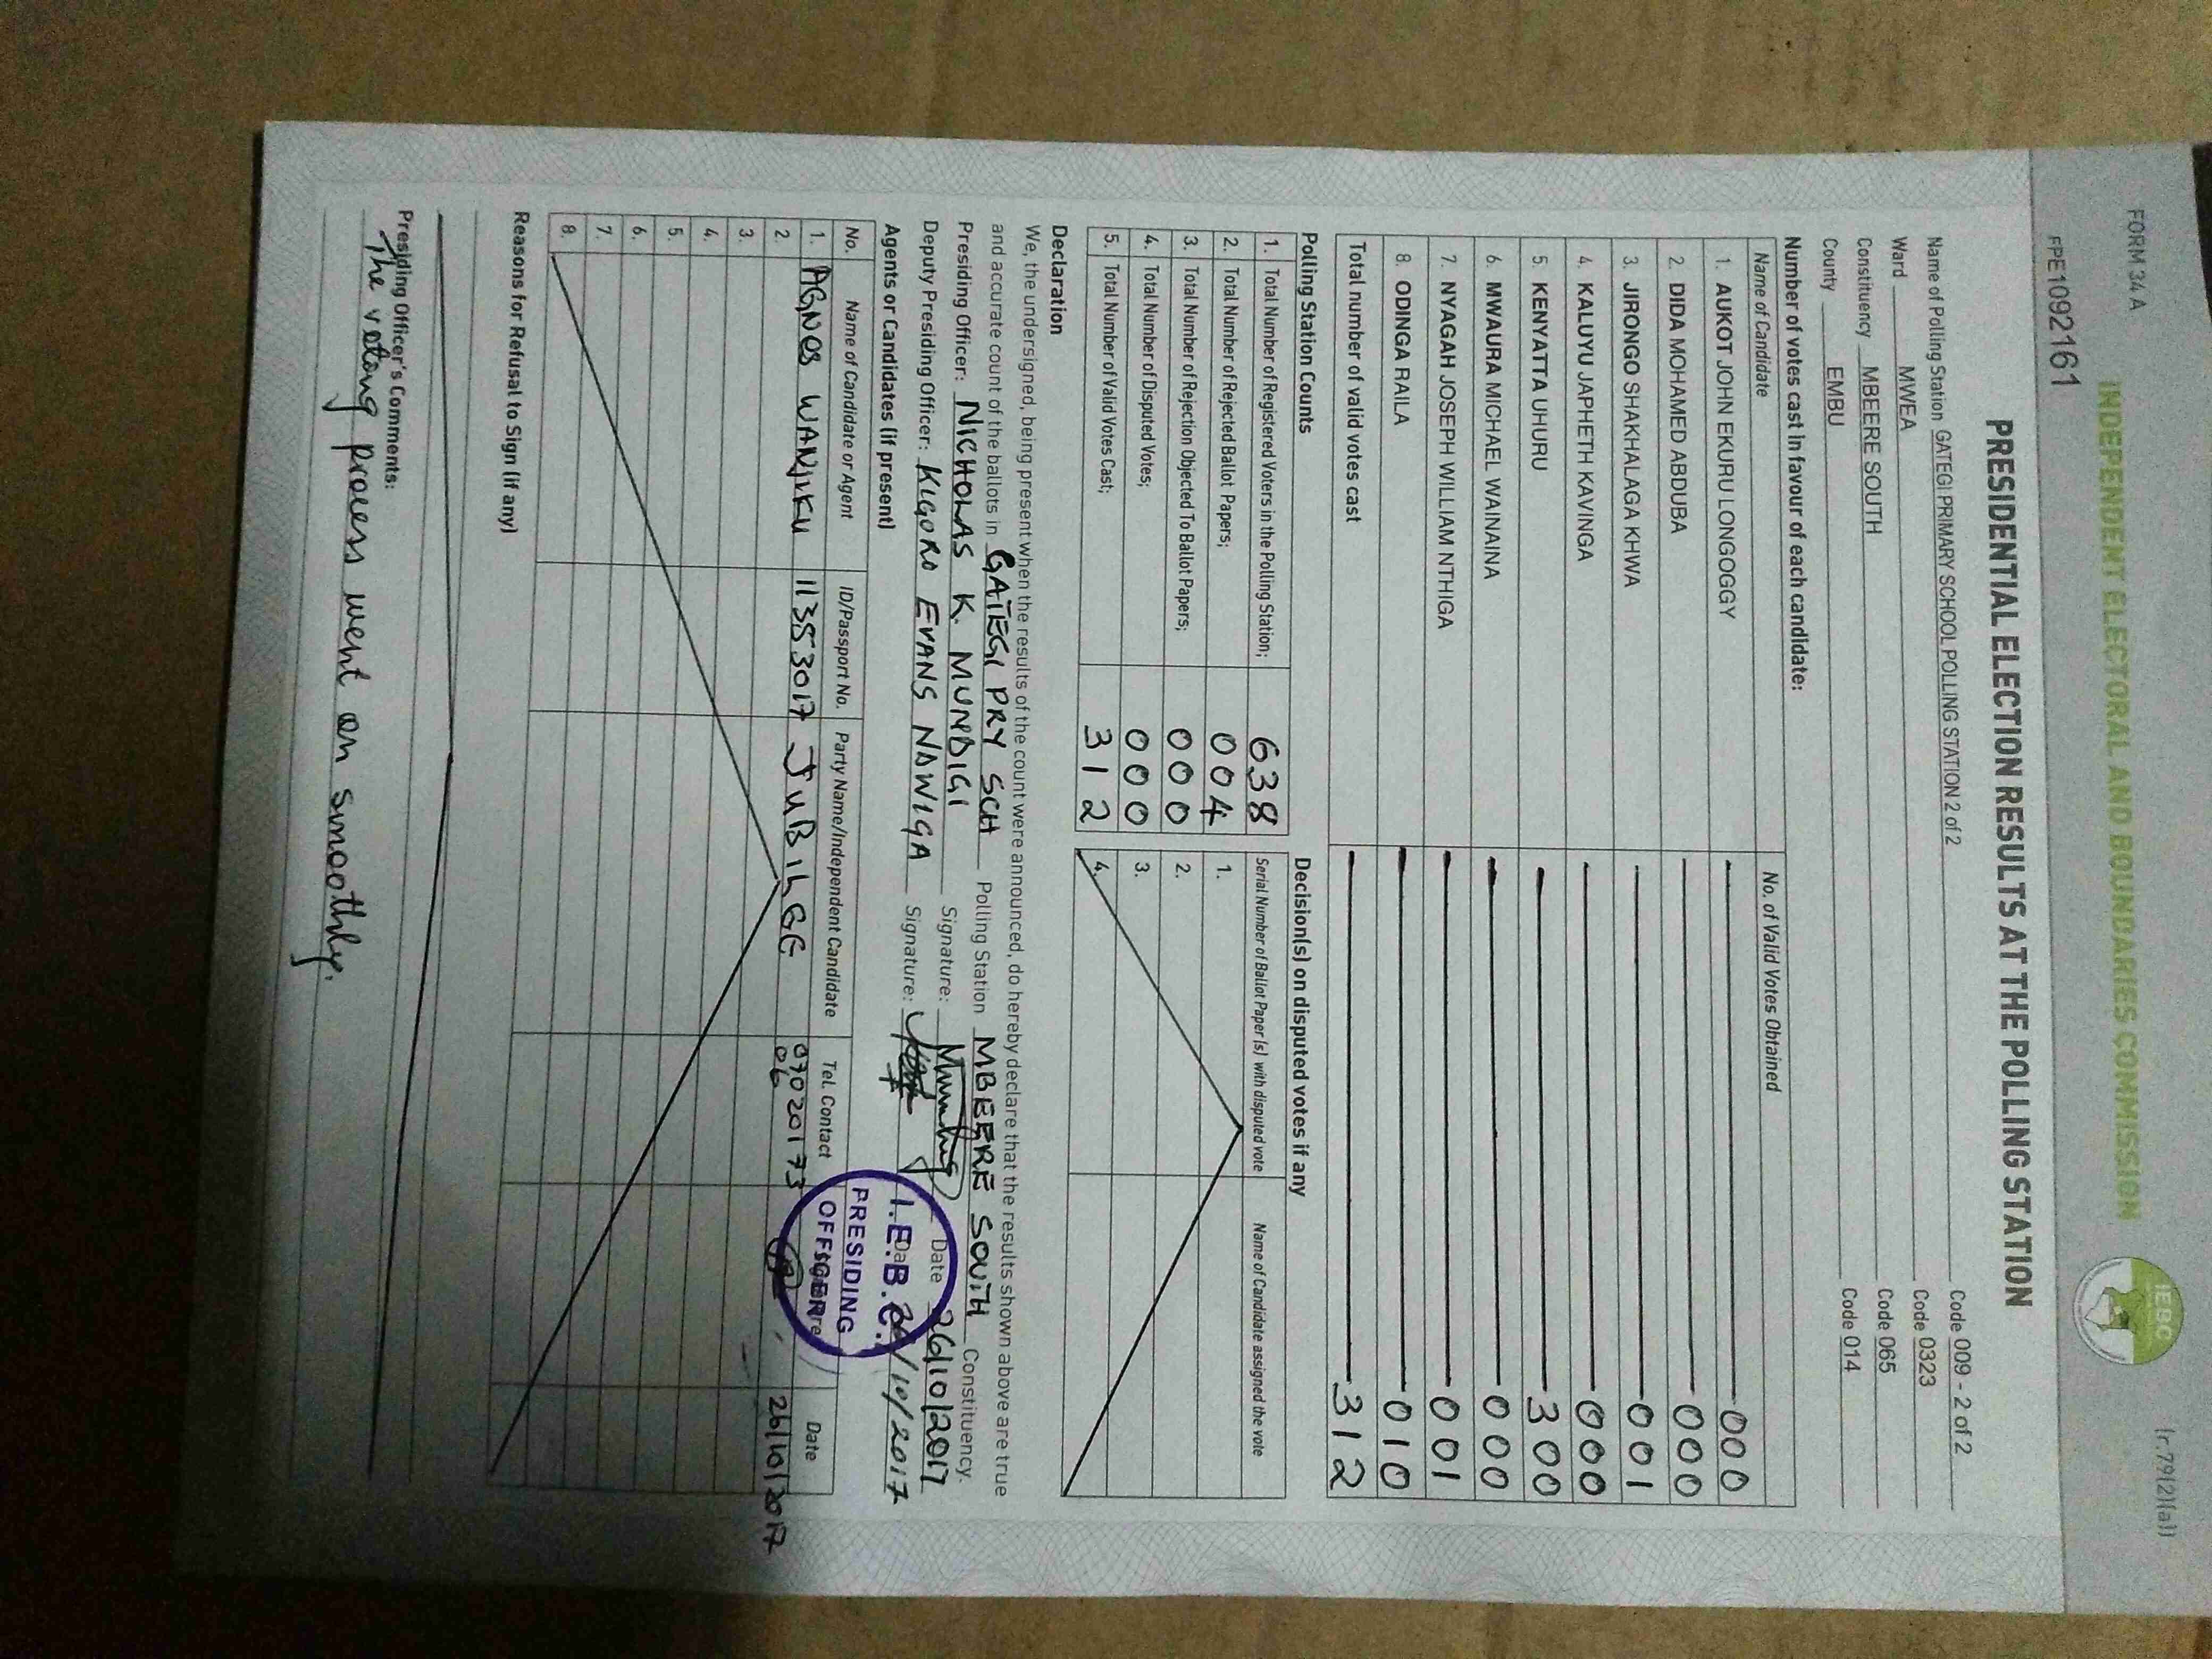 FORM 34 A
(r.79(2)(a))
INDEPENDENT ELECTORAL AND BOUNDARIES COMMISSION
IEBC
FPE1092161
PRESIDENTIAL ELECTION RESULTS AT THE POLLING STATION
Name of Polling Station GATEGI PRIMARY SCHOOL POLLING STATION 2 of 2 Code 009 - 2 of 2
Ward MWEA Code 0323
Constituency MBEERE SOUTH Code 065
County EMBU Code 014
Number of votes cast in favour of each candidate:
Name of Candidate No. of Valid Votes Obtained
1. AUKOT JOHN EKURU LONGOGGY 000
2. DIDA MOHAMED ABDUBA 000
3. JIRONGO SHAKHALAGA KHWA 001
4. KALUYU JAPHETH KAVINGA 000
5. KENYATTA UHURU 300
6. MWAURA MICHAEL WAINAINA 000
7. NYAGAH JOSEPH WILLIAM NTHIGA 001
8. ODINGA RAILA 010
Total number of valid votes cast 312
Polling Station Counts Decision(s) on disputed votes if any
1. Total Number of Registered Voters in the Polling Station; 638 Serial Number of Ballot Paper (s) with disputed vote Name of Candidate assigned the vote
2. Total Number of Rejected Ballot Papers; 004 1.
3. Total Number of Rejection Objected To Ballot Papers; 000 2.
4. Total Number of Disputed Votes; 000 3.
5. Total Number of Valid Votes Cast; 312 4.
Declaration
We, the undersigned, being present when the results of the count were announced, do hereby declare that the results shown above are true
and accurate count of the ballots in GATEGI PRY SCH Polling Station MBEERE SOUTH Constituency.
Presiding Officer: NICHOLAS K. MUNDIGI Signature: Date 26/10/2017
Deputy Presiding Officer: KIGORO EVANS NDWIGA Signature: Date 26/10/2017
I.E.B.C.
PRESIDING
OFFICER
Agents or Candidates (if present)
No. Name of Candidate or Agent ID/Passport No. Party Name/Independent Candidate Tel. Contact Date
1. AGNES WANJIKU 11353017 JUBILEE 0702017306 26/10/2017
2.
3.
4.
5.
6.
7.
8.
Reasons for Refusal to Sign (if any)
Presiding Officer's Comments:
The voting process went on smoothly.